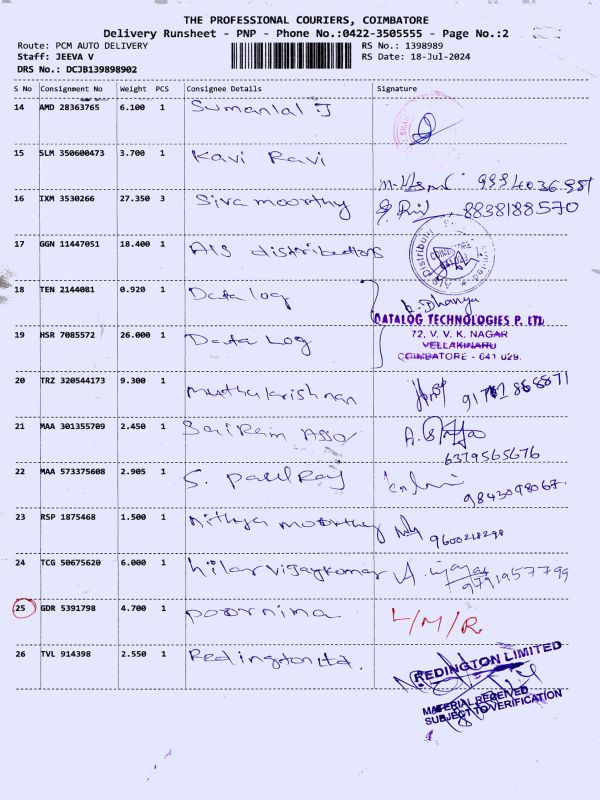 THE PROFESSIONAL COURIERS, COIMBATORE
Delivery Runsheet - PNP - Phone No.:0422-3505555 - Page No.:2
Route: PCM AUTO DELIVERY
RS No.: 1398989
Staff: JEEVA V
RS Date: 18-Jul-2024
DRS No.: DCJB139898902
S No Consignment No Weight PCS Consignee Details Signature
14 AMD 28363765 6.100 1 Sumanlal J
15 SLM 350600473 3.700 1 Kavi Ravi
16 IXM 3530266 27.350 3 Siva moorthy 8838188570
17 GGN 11447051 18.400 1 AIS distributors
18 TEN 2144081 0.920 1 Data log R. Dhanya
DATALOG TECHNOLOGIES P. LTD
19 HSR 7085572 26.000 1 Data Log
72, V. V. K. NAGAR
VELLAKINARU
COIMBATORE - 641 029.
20 TRZ 320544173 9.300 1 muthukrishnan
21 MAA 301355709 2.450 1 SaiRam Asso/
6379565676
22 MAA 573375608 2.905 1 S. paulRaj
9843098067
23 RSP 1875468 1.500 1 Nithya moorthy 9600218298
24 TCG 50675620 6.000 1 hilar vijaykumar
9791957799
25 GDR 5391798 4.700 1 poornima L/M/R
26 TVL 914398 2.550 1 Redington Ltd.
REDINGTON LIMITED
MATERIAL RECEIVED
SUBJECT TO VERIFICATION